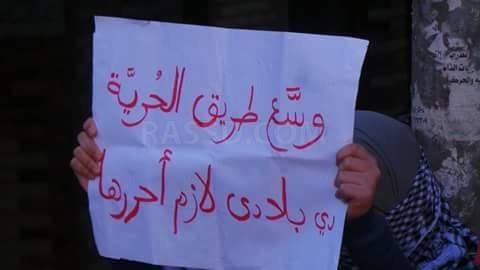 وسَّع طريق الحُريَّة
RASSD.COM
دي بلادى لازم أحررها